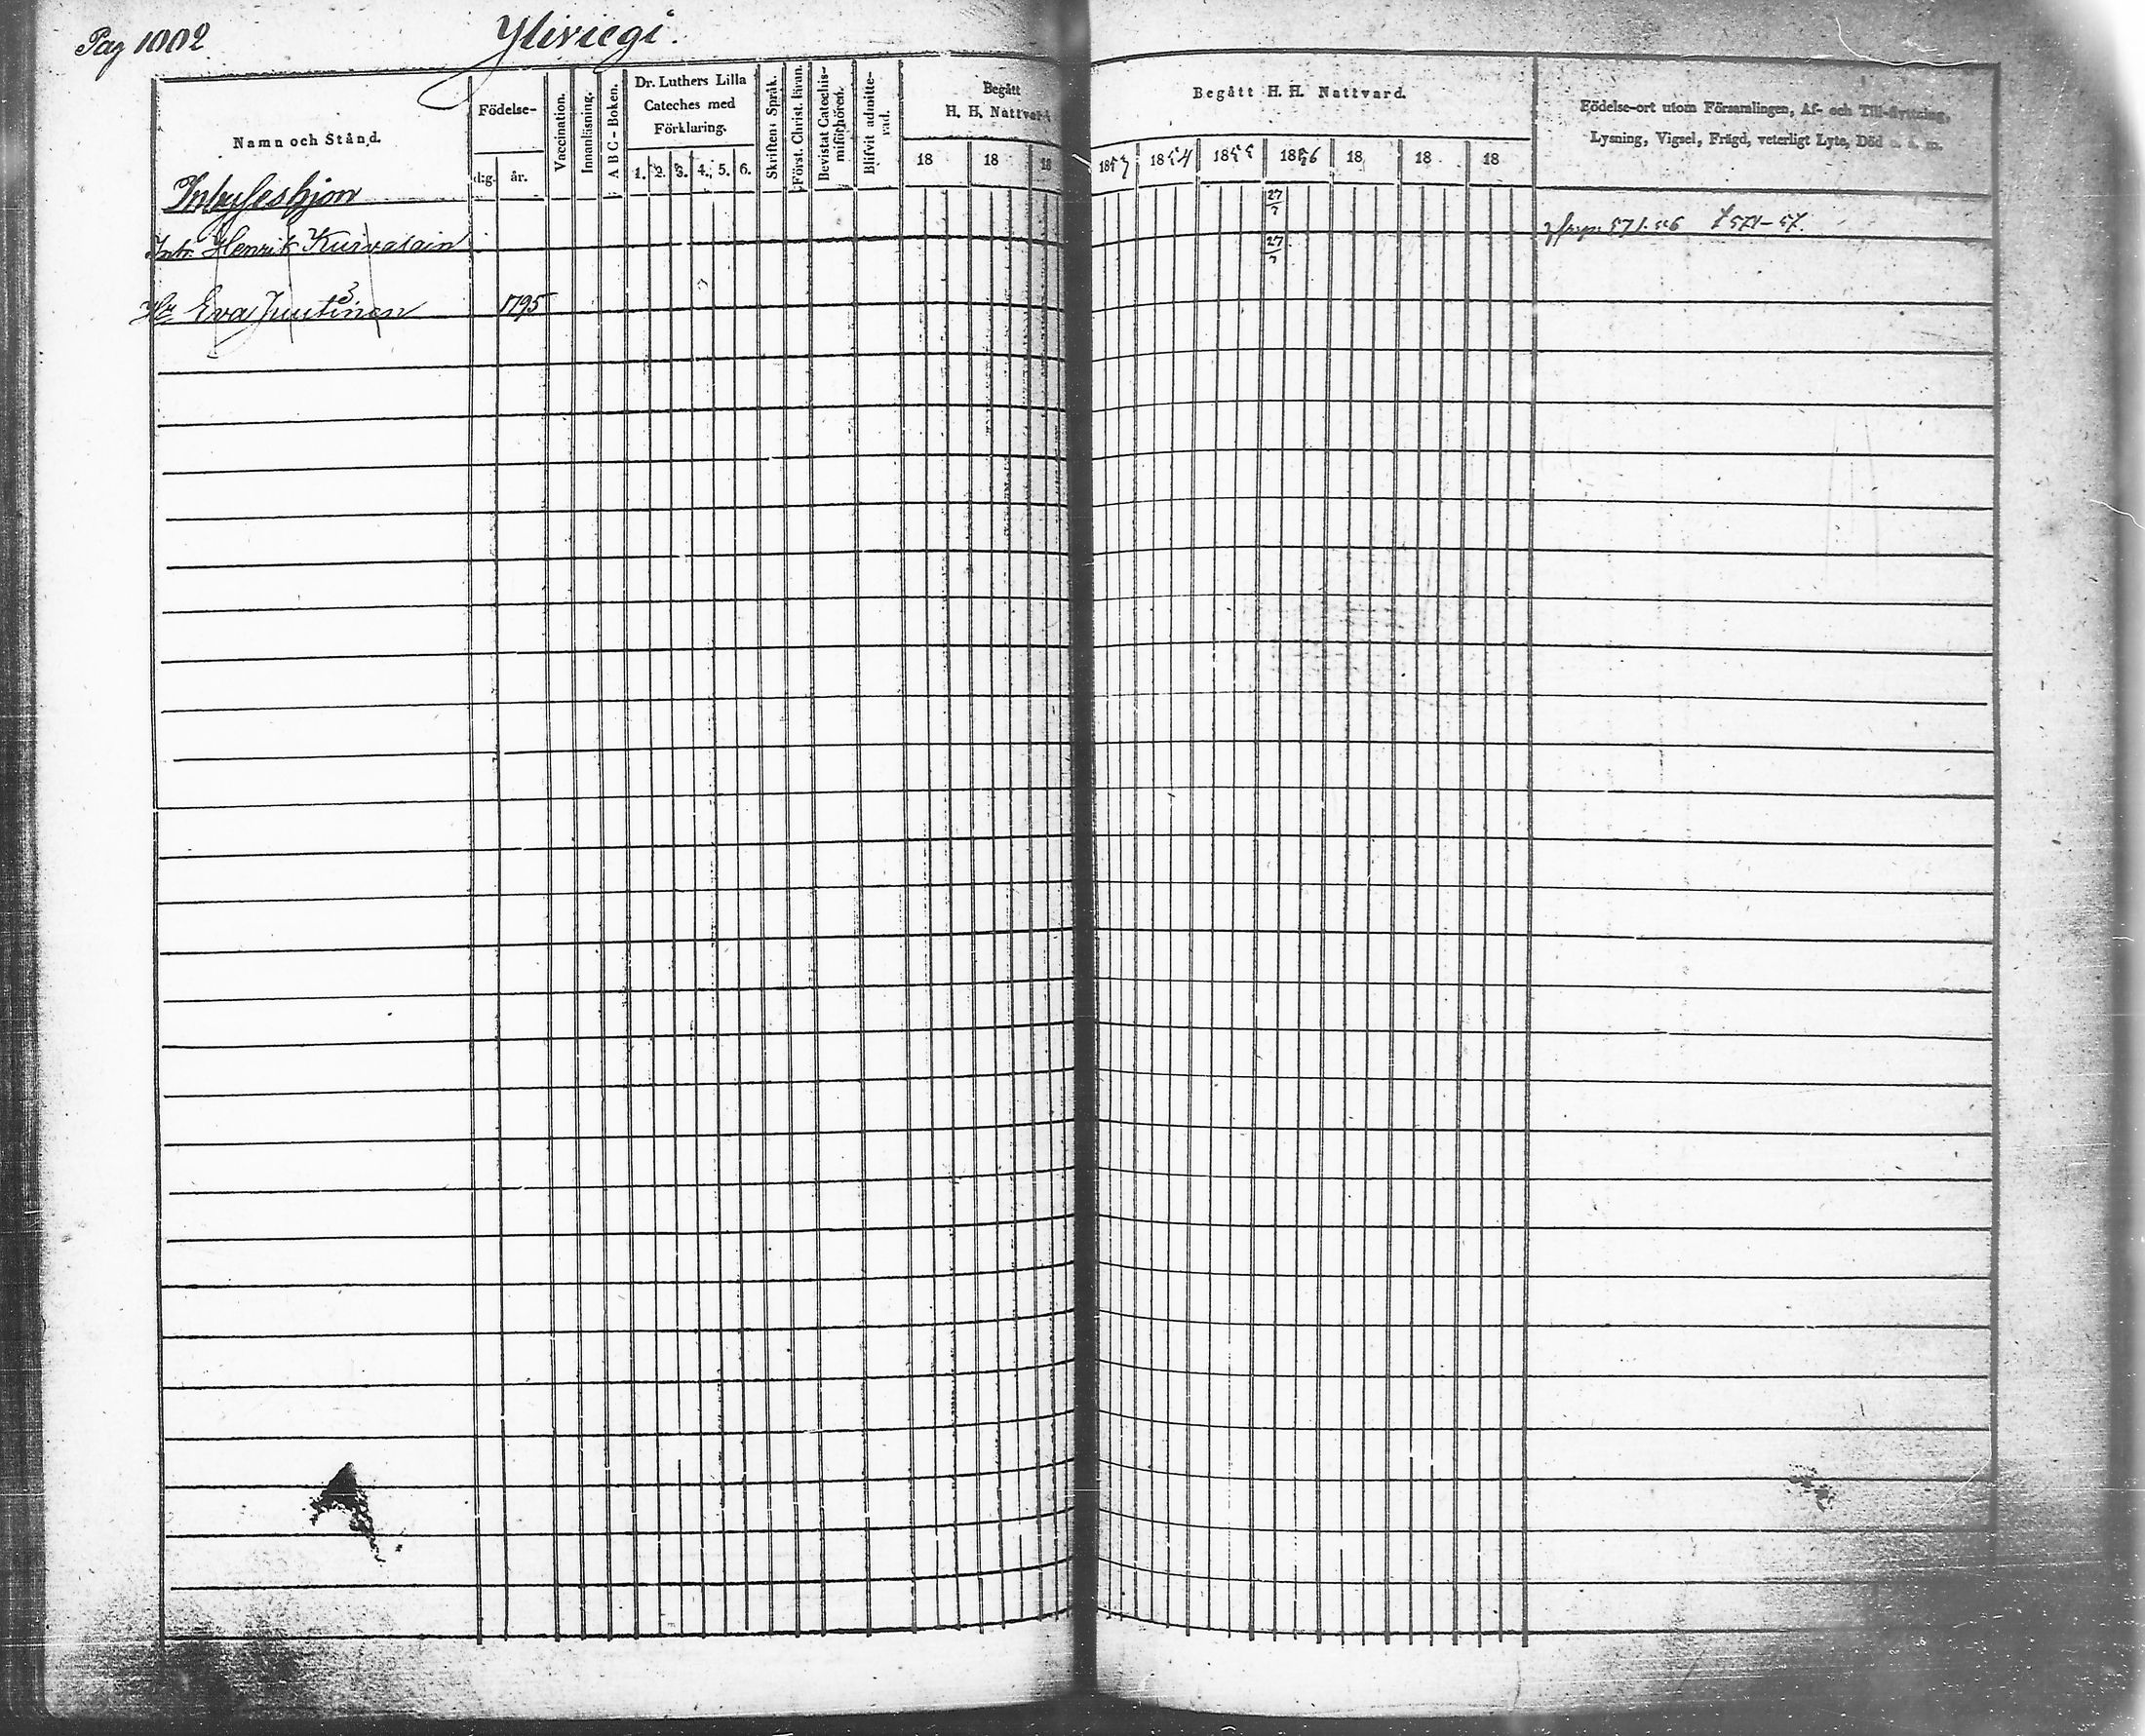 Pag 1002
Yliviegi.
Namn och Stånd.
Födelse-
dag.
år.
Vaccination.
Innanläsning.
A B C - Boken.
Dr. Luthers Lilla
Cateches med
Förklaring.
1. 2. 3. 4. 5. 6.
Skriftens Språk.
Först. Christ. läran.
Bevistat Catechis-
miförhören.
Blifvit admitte-
rad.
Begått
H. H. Nattvard
18 18 18
Begått H. H. Nattvard.
1853 1854 1855 1856 18 18 18
Födelse-ort utom Församlingen, Af- och Till-flyttning,
Lysning, Vigsel, Frägd, veterligt Lyte, Död o. s. m.
Inhyseshjon
27
7
Henrik
27
7
571.56 571-57.
Eva Juutinen 1795
3